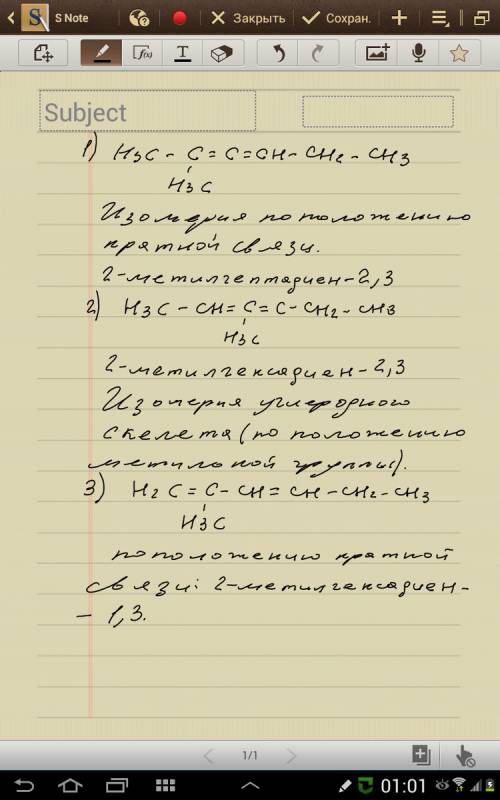 S Note
Закрыть
Сохран.
f(x)
T
Subject
1) H3C - C = C = CH - CH2 - CH3
H3C
Изомерия по положению
кратной связи.
2-метилгептадиен-2,3
2) H3C - CH = C = C - CH2 - CH3
H3C
2-метилгексадиен-2,3
Изомерия углеродного
скелета (по положению
метильной группы).
3) H2C = C - CH = CH - CH2 - CH3
H3C
по положению кратной
связи: 2-метилгексадиен-
- 1,3.
1/1
01:01